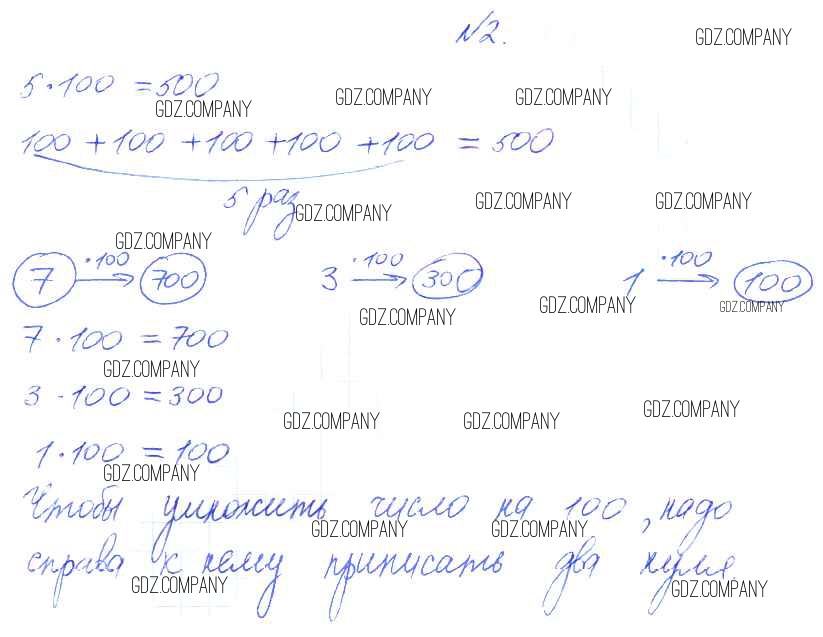 №2.
GDZ.COMPANY
5·100 = 500
GDZ.COMPANY GDZ.COMPANY GDZ.COMPANY
100 + 100 + 100 + 100 + 100 = 500
5 раз
GDZ.COMPANY GDZ.COMPANY GDZ.COMPANY
GDZ.COMPANY
·100 ·100 ·100
7 → 700 3 → 300 1 → 100
GDZ.COMPANY GDZ.COMPANY GDZ.COMPANY
7·100 = 700
GDZ.COMPANY
3·100 = 300
GDZ.COMPANY GDZ.COMPANY GDZ.COMPANY
1·100 = 100
GDZ.COMPANY
Чтобы умножить число на 100, надо
GDZ.COMPANY GDZ.COMPANY
справа к нему приписать два нуля.
GDZ.COMPANY GDZ.COMPANY